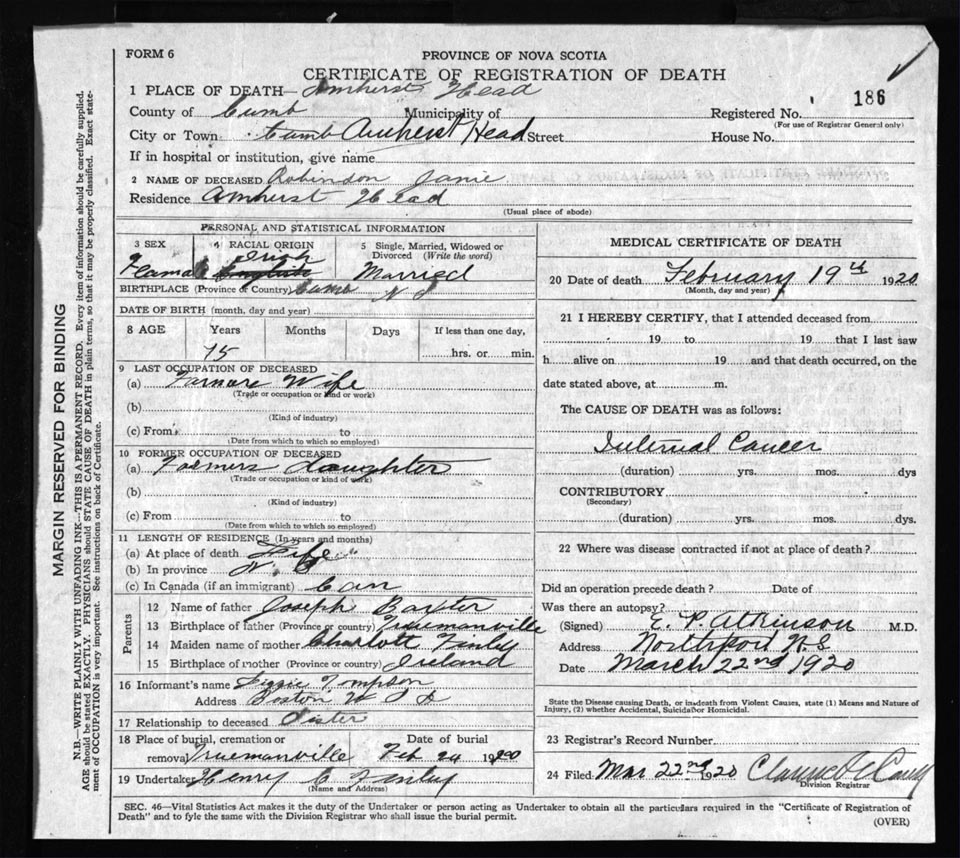 FORM 6
PROVINCE OF NOVA SCOTIA
CERTIFICATE OF REGISTRATION OF DEATH
1 PLACE OF DEATH— Amherst Head
186
County of Cumb Municipality of Registered No.
(For use of Registrar General only)
City or Town Cumb Amherst Head Street House No.
If in hospital or institution, give name
2 NAME OF DECEASED Robinson Janie
Residence Amherst Head
(Usual place of abode)
PERSONAL AND STATISTICAL INFORMATION
3 SEX 4 RACIAL ORIGIN 5 Single, Married, Widowed or Divorced (Write the word)
Irish
Married
BIRTHPLACE (Province or Country) Cumb N S
DATE OF BIRTH (month, day and year)
8 AGE Years Months Days If less than one day,
75 hrs. or min.
9 LAST OCCUPATION OF DECEASED
(a) Wife
(Trade or occupation or kind or work)
(b)
(Kind of industry)
(c) From to
(Date from which to which so employed)
10 FORMER OCCUPATION OF DECEASED
(a) Farmers daughter
(Trade or occupation or kind of work)
(b)
(Kind of industry)
(c) From to
(Date from which to which so employed)
11 LENGTH OF RESIDENCE (In years and months)
(a) At place of death Life
(b) In province N. S
(c) In Canada (if an immigrant) Can
Parents
12 Name of father Joseph Baxter
13 Birthplace of father (Province or country) Truemanville
14 Maiden name of mother Charlott Finley
15 Birthplace of mother (Province or country) Ireland
16 Informant's name Tompson
Address Boston
17 Relationship to deceased Sister
18 Place of burial, cremation or removal Truemanville
Date of burial Feb 24 1920
19 Undertaker Henry C Finley
(Name and Address)
MEDICAL CERTIFICATE OF DEATH
20 Date of death February 19th 1920
(Month, day and year)
21 I HEREBY CERTIFY, that I attended deceased from
19 to 19 that I last saw
h alive on 19 and that death occurred, on the
date stated above, at m.
The CAUSE OF DEATH was as follows:
Internal Cancer
(duration) yrs. mos. dys
CONTRIBUTORY
(Secondary)
(duration) yrs. mos. dys.
22 Where was disease contracted if not at place of death?
Did an operation precede death? Date of
Was there an autopsy?
(Signed) E. Atkinson M.D.
Address Northport N.S
Date March 22nd 1920
State the Disease causing Death, or in death from Violent Causes, state (1) Means and Nature of
Injury, (2) whether Accidental, Suicidal or Homicidal.
23 Registrar's Record Number
24 Filed Mar 22nd 1920
Division Registrar
SEC. 46—Vital Statistics Act makes it the duty of the Undertaker or person acting as Undertaker to obtain all the particulars required in the "Certificate of Registration of
Death" and to fyle the same with the Division Registrar who shall issue the burial permit.
(OVER)
MARGIN RESERVED FOR BINDING
N.B.—WRITE PLAINLY WITH UNFADING INK—THIS IS A PERMANENT RECORD. Every item of information should be carefully supplied.
AGE should be stated EXACTLY. PHYSICIANS should STATE CAUSE OF DEATH in plain terms, so that it may be properly classified. Exact state-
ment of OCCUPATION is very important. See instructions on back of Certificate.